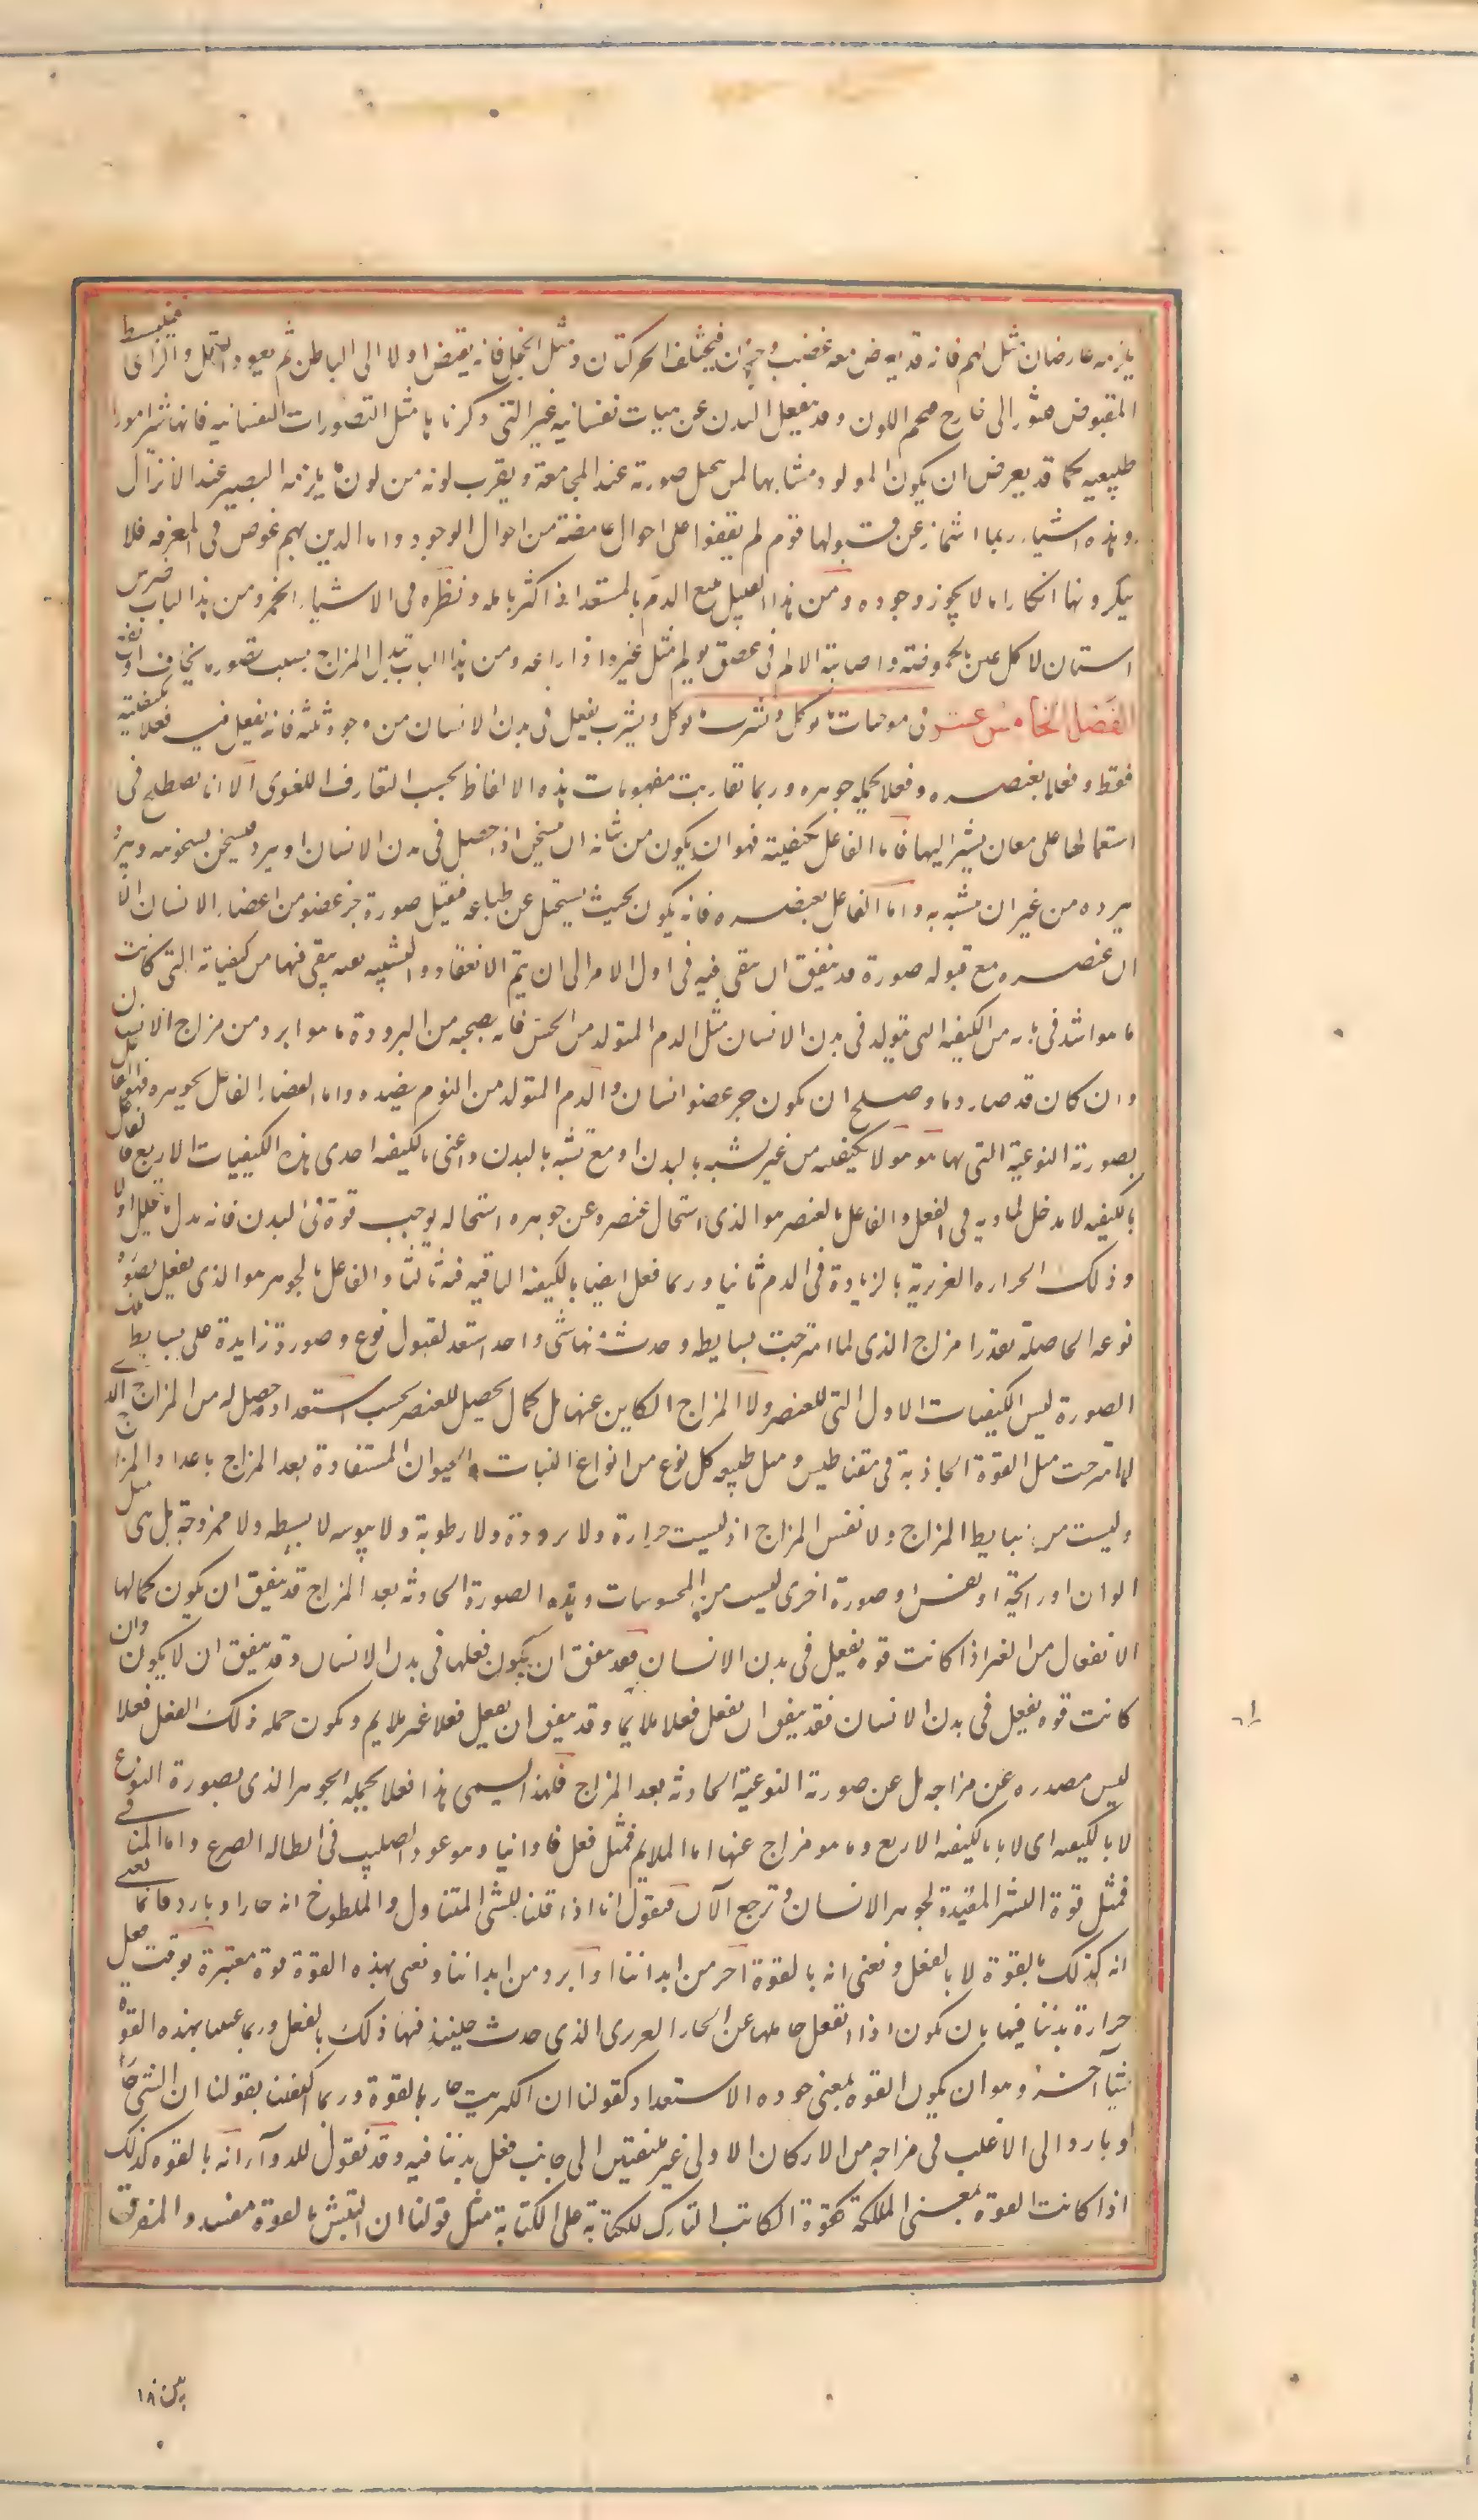 يلزمه عارضان مثل الهم فانه قد يعرض معه غضب وحزن فيختلف الحركتان ومثل الخجل فانه يقبض اولا الى الباطن ثم يعود العقل والراى فينبسط
المقبوض فيثور الى خارج فيحمر اللون وقد ينفعل البدن عن هيات نفسانيه غير التى ذكرناها مثل التصورات النفسانيه فانها تثير امورا
طبيعيه كما قد يعرض ان يكون المولود مشابها لمن يتخيل صورته عند المجامعة ويقرب لونه من لون ما يلزمه البصير عند الانزال
وهذه اشياء ربما اشماز عن قبولها قوم لم يقفوا على احوال غامضة من احوال الوجود واما الذين لهم غوص فى المعرفه فلا
ينكرونها انكار ما لا يجوز وجوده ومن هذا القبيل تتبع الدم المستعد اذا اكثر تامله ونظره فى الاشياء الحمر ومن هذا الباب ضرس
اسنان لاكل غيره الحموضة واصابة الالم فى عضو يولم مثل غيره اذا راعه ومن هذا الباب تبدل المزاج بسبب تصور ما يخاف او
الفصل الخامس عشر فى موجبات ما يوكل ويشرب ما يوكل ويشرب يفعل فى بدن الانسان من وجوه ثلثه فانه يفعل فيه فعلا بكيفيته
فقط وفعلا بعنصره وفعلا بجملة جوهره وربما تقاربت مفهومات هذه الالفاظ بحسب التعارف اللغوى الا انا نصطلح فى
استعمالها على معان نشير اليها فاما الفاعل بكيفيته فهو ان يكون من شانه ان يتسخن اذا حصل فى بدن الانسان او يبرد فيسخن بسخونته ويبرد
ببرده من غير ان يتشبه به واما الفاعل بعنصره فانه يكون بحيث يستحيل عن طباعه فيقبل صورة جزء عضو من اعضاء الانسان الا
ان عنصره مع قبوله صورته قد يتفق ان يبقى فيه فى اول الامر الى ان يتم الانعقاد والتشبه بقيه تبقى فيها من كيفياته التى كانت
ما هو اشد فى بابه من الكيفيه التى يتولد فى بدن الانسان مثل الدم المتولد من الخس فانه يصحبه من البرودة ما هو ابرد من مزاج الانسان
وان كان قد صار دما وصلح ان يكون جزء عضو انسان والدم المتولد من الثوم بضده واما الفاعل بجوهره فهو الفاعل
بصورته النوعية التى بها هو هو لا بكيفيته من غير تشبه بالبدن او مع تشبه بالبدن واعنى بالكيفيه احدى هذه الكيفيات الاربع فالفاعل
بالكيفيه لا مدخل لمادته فى الفعل والفاعل بالعنصر هو الذى استحال عنصره عن جوهره استحاله يوجب قوة فى البدن فانه بدل ما يتحلل اولا
وذلك الحراره الغريزية بالزيادة فى الدم ثانيا وربما فعل ايضا بالكيفية الباقيه فيه ثالثا والفاعل بالجوهر هو الذى يفعل بصوره
نوعه الحاصلة بعد المزاج الذى لما امتزجت بسايطه وحدث منها شى واحد استعد لقبول نوع وصورة زايدة على بسايط تلك
الصورة ليس الكيفيات الاول التى للعنصر ولا المزاج الكاين عنها بل كمال يحصل للعنصر بحسب استعداد حصل له من المزاج
لما امتزجت مثل القوة الجاذبة فى مقناطيس ومثل طبيعه كل نوع من انواع النبات والحيوان المستفادة بعد المزاج باعداد المزاج
وليست من بسايط المزاج ولا نفس المزاج اذ ليست حرارة ولا برودة ولا رطوبة ولا يبوسه لا بسيطه ولا ممزوجة بل هى مثل
الوان او رايحة او نفس او صورة اخرى ليست من المحسوسات وهذه الصورة الحادثه بعد المزاج قد يتفق ان يكون كمالها
الانفعال من الغير اذا كانت قوه يفعل فى بدن الانسان فقد يتفق ان يكون فعلها فى بدن الانسان وقد يتفق ان لا يكون وان
كانت قوه يفعل فى بدن الانسان فقد يتفق ان يفعل فعلا ملايما وقد يتفق ان يفعل فعلا غير ملايم ويكون جمله ذلك الفعل فعلا
ليس مصدره عن مزاجه بل عن صورته النوعية الحادثه بعد المزاج فلهذا يسمى هذا فعلا بجملة الجوهر الذى بصورة النوع
لا بالكيفيه اى لا بالكيفيه الاربع وما هو مزاج عنها اما الملايم فمثل فعل فاوانيا وهو عود الصليب فى ابطاله الصرع واما المنافى
فمثل قوة البيش المفسدة لجوهر الانسان ونرجع الآن فنقول انا اذا قلنا للشى المتناول والملطوخ انه حار او بارد فانما نعنى
انه كذلك بالقوة لا بالفعل ونعنى انه بالقوة احر من ابداننا او ابرد من ابداننا ونعنى بهذه القوة قوة معتبرة بوقت فعل
حرارة بدننا فيها بان يكون اذا انفعل حاملها عن الحار الغريزى الذى حدث حينئذ فيها ذلك بالفعل وربما عنينا بهذه القوة
شيا آخر وهو ان يكون القوه بمعنى جوده الاستعداد كقولنا ان الكبريت حار بالقوة وربما اكتفينا بقولنا ان الشى حار
او بارد الى الاغلب فى مزاجه من الاركان الاولى غير ملتفتين الى جانب فعل بدننا فيه وقد نقول للدوآء انه بالقوه كذلك
اذا كانت القوة بمعنى الملكة كقوة الكاتب التارك للكتابة على الكتابة مثل قولنا ان البيش بالقوة مفسد والفرق